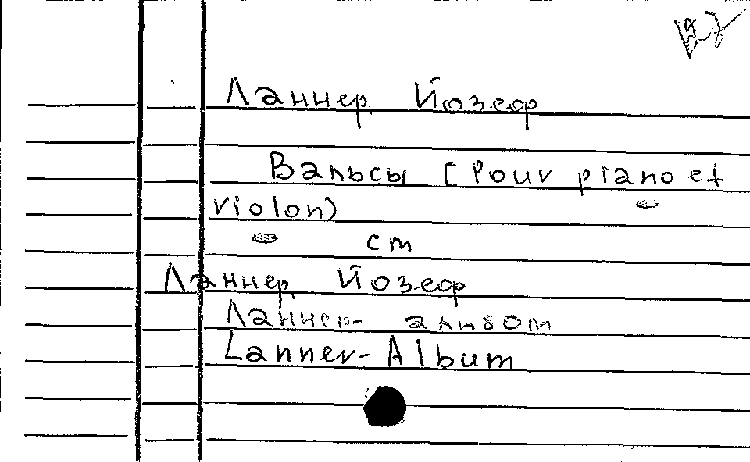 Ланнер Йозеф
Вальсы (Pour piano et
violon)
cm
Ланнер Йозеф
Ланнер-альбом
Lanner-Album